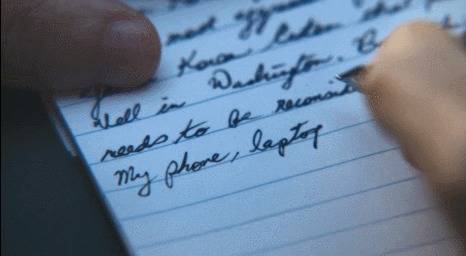 most
Karen that
Well in Washington. B
needs to be reconsi
My phone, laptop